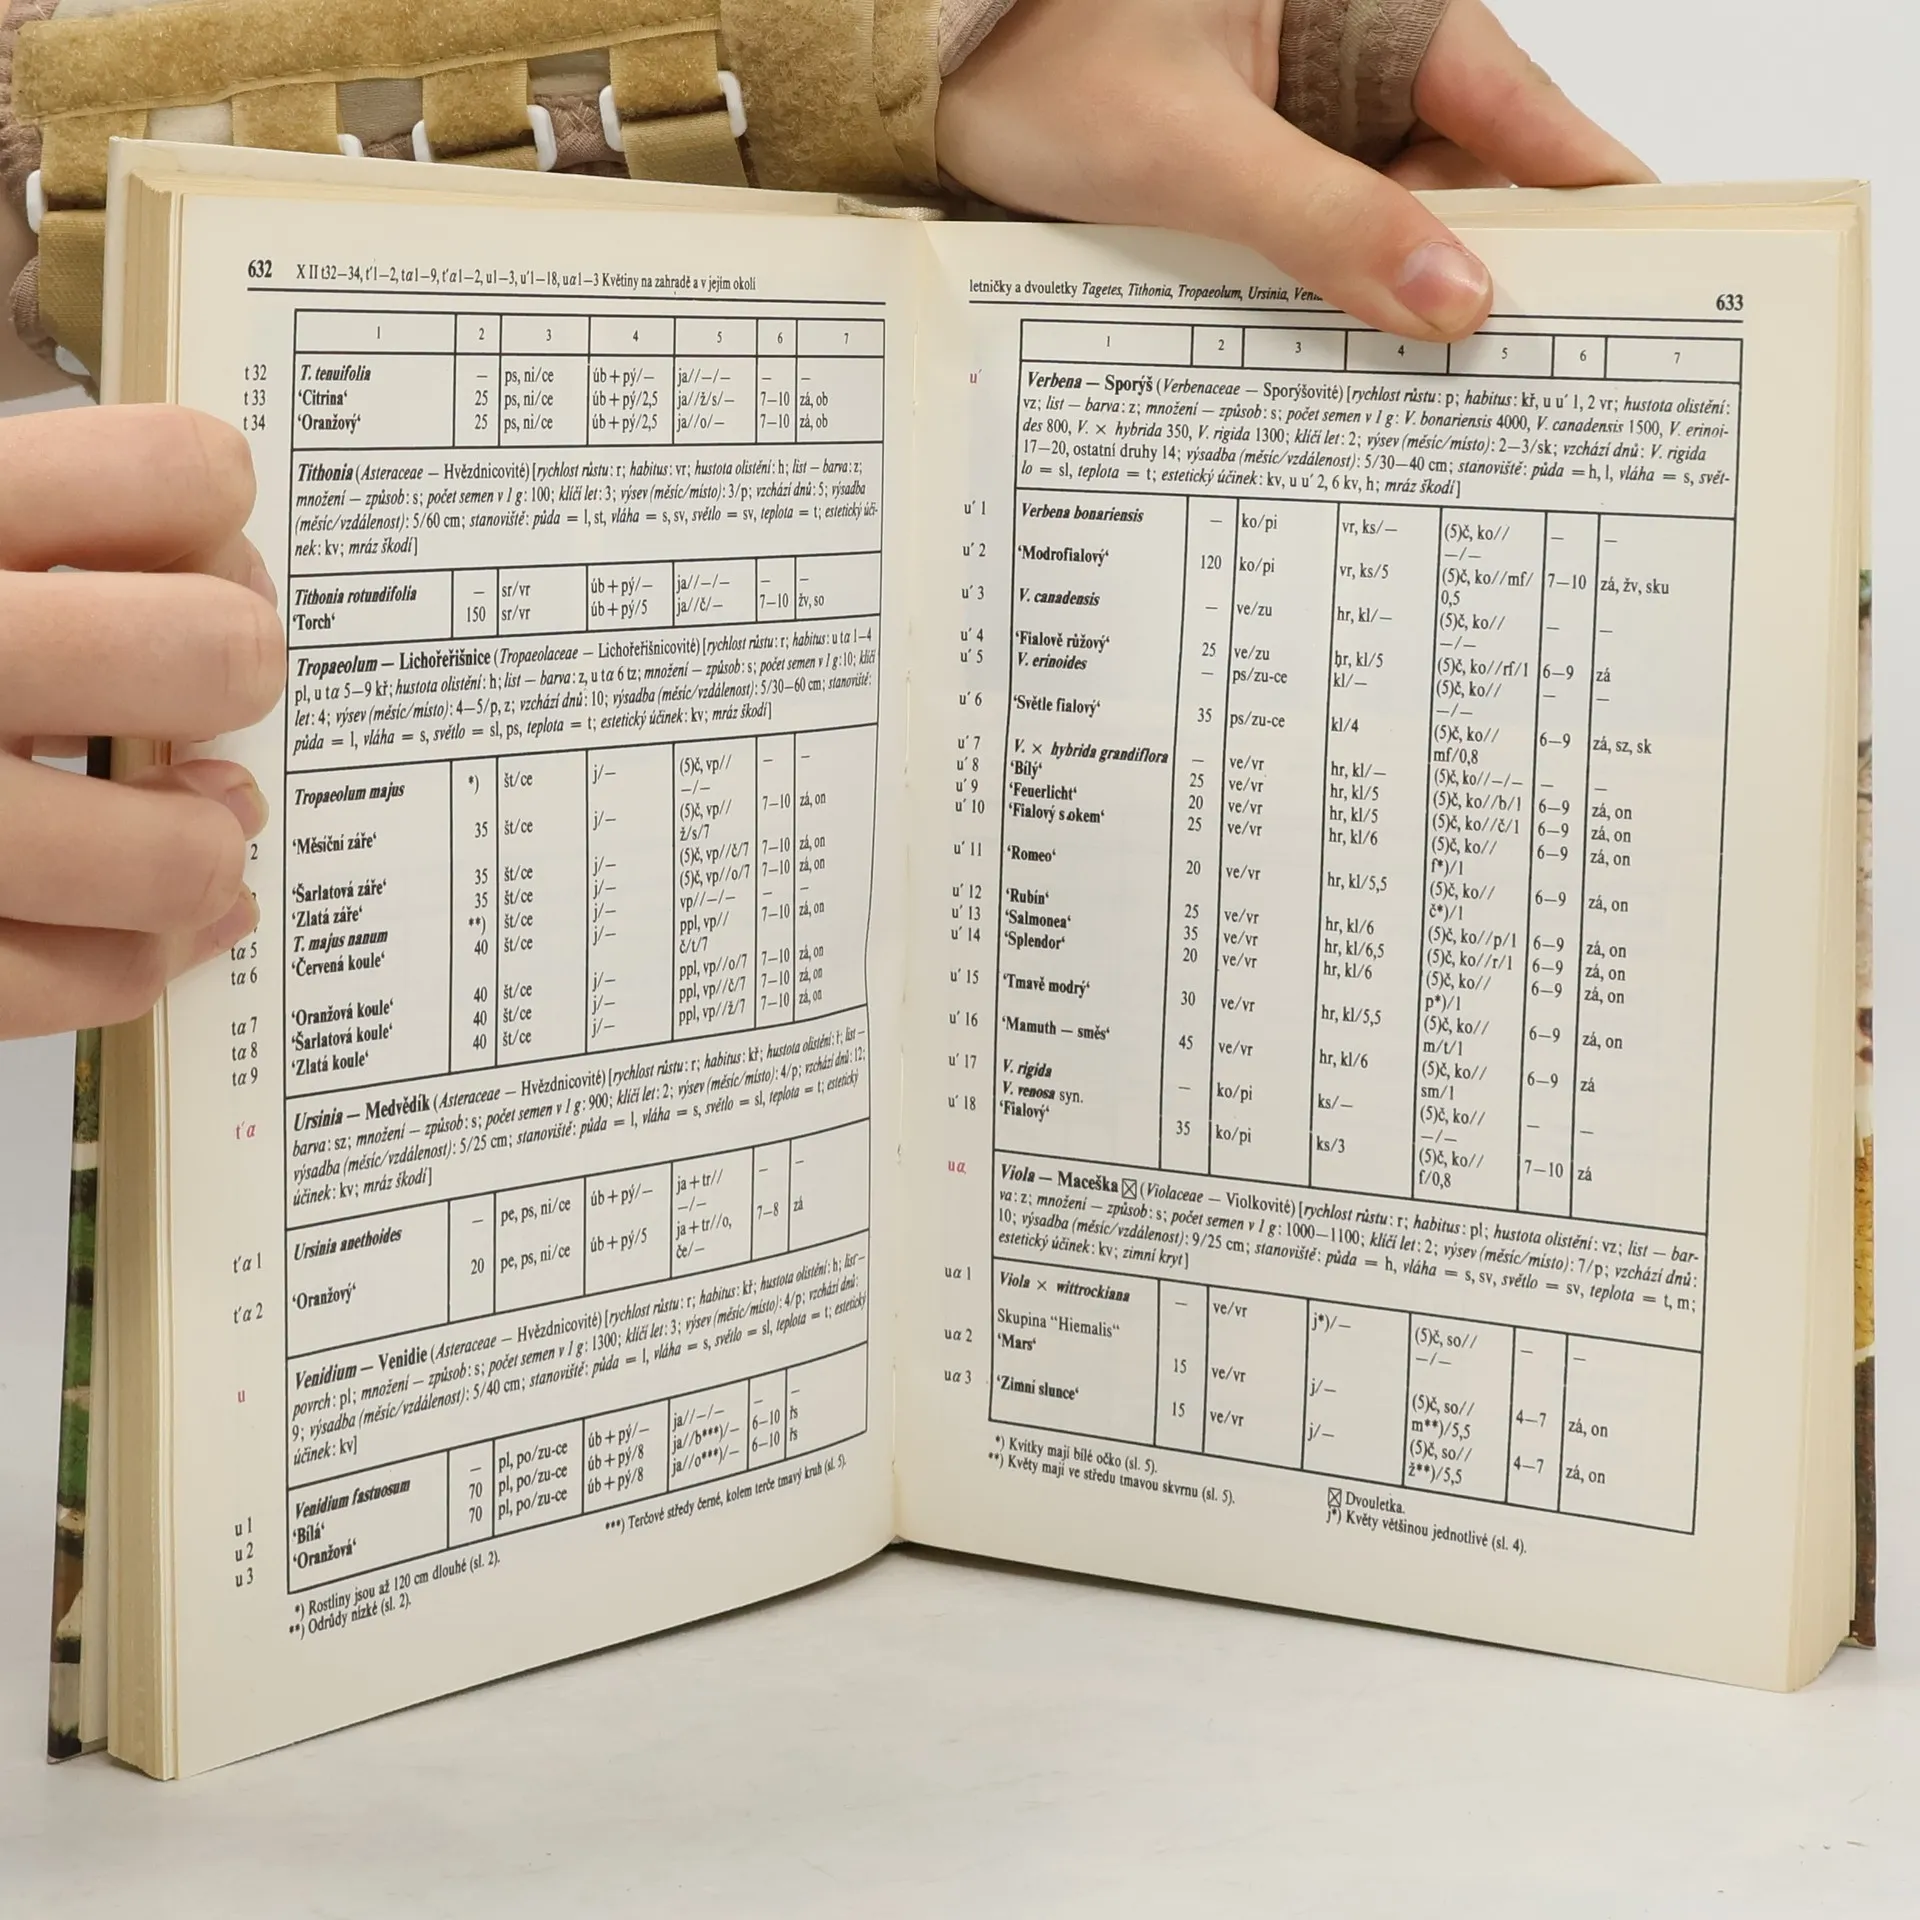 632 X II t32–34, t´1–2, tα1–9, t´α1–2, u1–3, u´1–18, uα1–3 Květiny na zahradě a v jejím okolí
1 2 3 4 5 6 7
t 32 T. tenuifolia — ps, ni/ce úb + pý/— ja//—/— — —
t 33 ‘Citrina‘ 25 ps, ni/ce úb + pý/2,5 ja//ž/s/— 7–10 zá, ob
t 34 ‘Oranžový‘ 25 ps, ni/ce úb + pý/2,5 ja//o/— 7–10 zá, ob
Tithonia (Asteraceae — Hvězdnicovité) [rychlost růstu: r; habitus: vr; hustota olistění: h; list — barva: z;
množení — způsob: s; počet semen v 1 g: 100; klíčí let: 3; výsev (měsíc/místo): 3/p; vzchází dnů: 5; výsadba
(měsíc/vzdálenost): 5/60 cm; stanoviště: půda = l, st, vláha = s, sv, světlo = sv, teplota = t; estetický úči-
nek: kv; mráz škodí]
Tithonia rotundifolia — sr/vr úb + pý/— ja//—/— — —
‘Torch‘ 150 sr/vr úb + pý/5 ja//č/— 7–10 žv, so
Tropaeolum — Lichořeřišnice (Tropaeolaceae — Lichořeřišnicovité) [rychlost růstu: r; habitus: u tα 1–4
pl, u tα 5–9 kř; hustota olistění: h; list — barva: z, u tα 6 tz; množení — způsob: s; počet semen v 1 g: 10; klíčí
let: 4; výsev (měsíc/místo): 4–5/p, z; vzchází dnů: 10; výsadba (měsíc/vzdálenost): 5/30–60 cm; stanoviště:
půda = l, vláha = s, světlo = sl, ps, teplota = t; estetický účinek: kv; mráz škodí]
Tropaeolum majus *) št/ce j/— (5)č, vp// — —
—/—
2 ‘Měsíční záře‘ 35 št/ce j/— (5)č, vp// 7–10 zá, on
ž/s/7
‘Šarlatová záře‘ 35 št/ce j/— (5)č, vp//č/7 7–10 zá, on
‘Zlatá záře‘ 35 št/ce j/— (5)č, vp//o/7 7–10 zá, on
tα 5 T. majus nanum **) št/ce j/— vp//—/— — —
tα 6 ‘Červená koule‘ 40 št/ce j/— ppl, vp// 7–10 zá, on
č/t/7
tα 7 ‘Oranžová koule‘ 40 št/ce j/— ppl, vp//o/7 7–10 zá, on
tα 8 ‘Šarlatová koule‘ 40 št/ce j/— ppl, vp//č/7 7–10 zá, on
tα 9 ‘Zlatá koule‘ 40 št/ce j/— ppl, vp//ž/7 7–10 zá, on
t´α Ursinia — Medvědík (Asteraceae — Hvězdnicovité) [rychlost růstu: r; habitus: kř; hustota olistění: ř; list —
barva: sz; množení — způsob: s; počet semen v 1 g: 900; klíčí let: 2; výsev (měsíc/místo): 4/p; vzchází dnů: 12;
výsadba (měsíc/vzdálenost): 5/25 cm; stanoviště: půda = l, vláha = s, světlo = sl, teplota = t; estetický
účinek: kv; mráz škodí]
t´α 1 Ursinia anethoides — pe, ps, ni/ce úb + pý/— ja + tr// — —
—/—
t´α 2 ‘Oranžový‘ 20 pe, ps, ni/ce úb + pý/5 ja + tr//o, 7–8 zá
če/—
u Venidium — Venidie (Asteraceae — Hvězdnicovité) [rychlost růstu: r; habitus: kř; hustota olistění: h; list —
povrch: pl; množení — způsob: s; počet semen v 1 g: 1300; klíčí let: 3; výsev (měsíc/místo): 4/p; vzchází dnů:
9; výsadba (měsíc/vzdálenost): 5/40 cm; stanoviště: půda = l, vláha = s, světlo = sl, teplota = t; estetický
účinek: kv]
u 1 Venidium fastuosum — pl, po/zu-ce úb + pý/— ja//—/— — —
u 2 ‘Bílá‘ 70 pl, po/zu-ce úb + pý/8 ja//b***)/— 6–10 řs
u 3 ‘Oranžová‘ 70 pl, po/zu-ce úb + pý/8 ja//o***)/— 6–10 řs
*) Rostliny jsou až 120 cm dlouhé (sl. 2). ***) Terčové středy černé, kolem terče tmavý kruh (sl. 5).
**) Odrůdy nízké (sl. 2).
letničky a dvouletky Tagetes, Tithonia, Tropaeolum, Ursinia, 633
1 2 3 4 5 6 7
u´ Verbena — Sporýš (Verbenaceae — Sporýšovité) [rychlost růstu: p; habitus: kř, u u´ 1, 2 vr; hustota olistění:
vz; list — barva: z; množení — způsob: s; počet semen v 1 g: V. bonariensis 4000, V. canadensis 1500, V. erinoi-
des 800, V. × hybrida 350, V. rigida 1300; klíčí let: 2; výsev (měsíc/místo): 2–3/sk; vzchází dnů: V. rigida
17–20, ostatní druhy 14; výsadba (měsíc/vzdálenost): 5/30–40 cm; stanoviště: půda = h, l, vláha = s, svět-
lo = sl, teplota = t; estetický účinek: kv, u u´ 2, 6 kv, h; mráz škodí]
u´ 1 Verbena bonariensis — ko/pi vr, ks/— (5)č, ko// — —
—/—
u´ 2 ‘Modrofialový‘ 120 ko/pi vr, ks/5 (5)č, ko//mf/ 7–10 zá, žv, sku
0,5
u´ 3 V. canadensis — ve/zu hr, kl/— (5)č, ko// — —
—/—
u´ 4 ‘Fialově růžový‘ 25 ve/zu hr, kl/5 (5)č, ko//rf/1 6–9 zá
u´ 5 V. erinoides — ps/zu-ce kl/— (5)č, ko// — —
—/—
u´ 6 ‘Světle fialový‘ 35 ps/zu-ce kl/4 (5)č, ko// 6–9 zá, sz, sk
mf/0,8
u´ 7 V. × hybrida grandiflora — ve/vr hr, kl/— (5)č, ko//—/— — —
u´ 8 ‘Bílý‘ 25 ve/vr hr, kl/5 (5)č, ko//b/1 6–9 zá, on
u´ 9 ‘Feuerlicht‘ 20 ve/vr hr, kl/5 (5)č, ko//č/1 6–9 zá, on
u´ 10 ‘Fialový s okem‘ 25 ve/vr hr, kl/6 (5)č, ko// 6–9 zá, on
f*)/1
u´ 11 ‘Romeo‘ 20 ve/vr hr, kl/5,5 (5)č, ko// 6–9 zá, on
č*)/1
u´ 12 ‘Rubín‘ 25 ve/vr hr, kl/6 (5)č, ko//p/1 6–9 zá, on
u´ 13 ‘Salmonea‘ 35 ve/vr hr, kl/6,5 (5)č, ko//r/1 6–9 zá, on
u´ 14 ‘Splendor‘ 20 ve/vr hr, kl/6 (5)č, ko// 6–9 zá, on
p*)/1
u´ 15 ‘Tmavě modrý‘ 30 ve/vr hr, kl/5,5 (5)č, ko// 6–9 zá, on
m/t/1
u´ 16 ‘Mamuth — směs‘ 45 ve/vr hr, kl/6 (5)č, ko// 6–9 zá
sm/1
u´ 17 V. rigida — ko/pi ks/— (5)č, ko// — —
V. venosa syn. —/—
u´ 18 ‘Fialový‘ 35 ko/pi ks/3 (5)č, ko// 7–10 zá
f/0,8
uα Viola — Maceška ☒ (Violaceae — Violkovité) [rychlost růstu: r; habitus: pl; hustota olistění: vz; list — bar-
va: z; množení — způsob: s; počet semen v 1 g: 1000—1100; klíčí let: 2; výsev (měsíc/místo): 7/p; vzchází dnů:
10; výsadba (měsíc/vzdálenost): 9/25 cm; stanoviště: půda = h, vláha = s, sv, světlo = sv, teplota = t, m;
estetický účinek: kv; zimní kryt]
uα 1 Viola × wittrockiana — ve/vr j*)/— (5)č, so// — —
Skupina “Hiemalis“ —/—
uα 2 ‘Mars‘ 15 ve/vr j/— (5)č, so// 4–7 zá, on
m**)/5,5
uα 3 ‘Zimní slunce‘ 15 ve/vr j/— (5)č, so// 4–7 zá, on
ž**)/5,5
*) Kvítky mají bílé očko (sl. 5). ☒ Dvouletka.
**) Květy mají ve středu tmavou skvrnu (sl. 5). j*) Květy většinou jednotlivé (sl. 4).